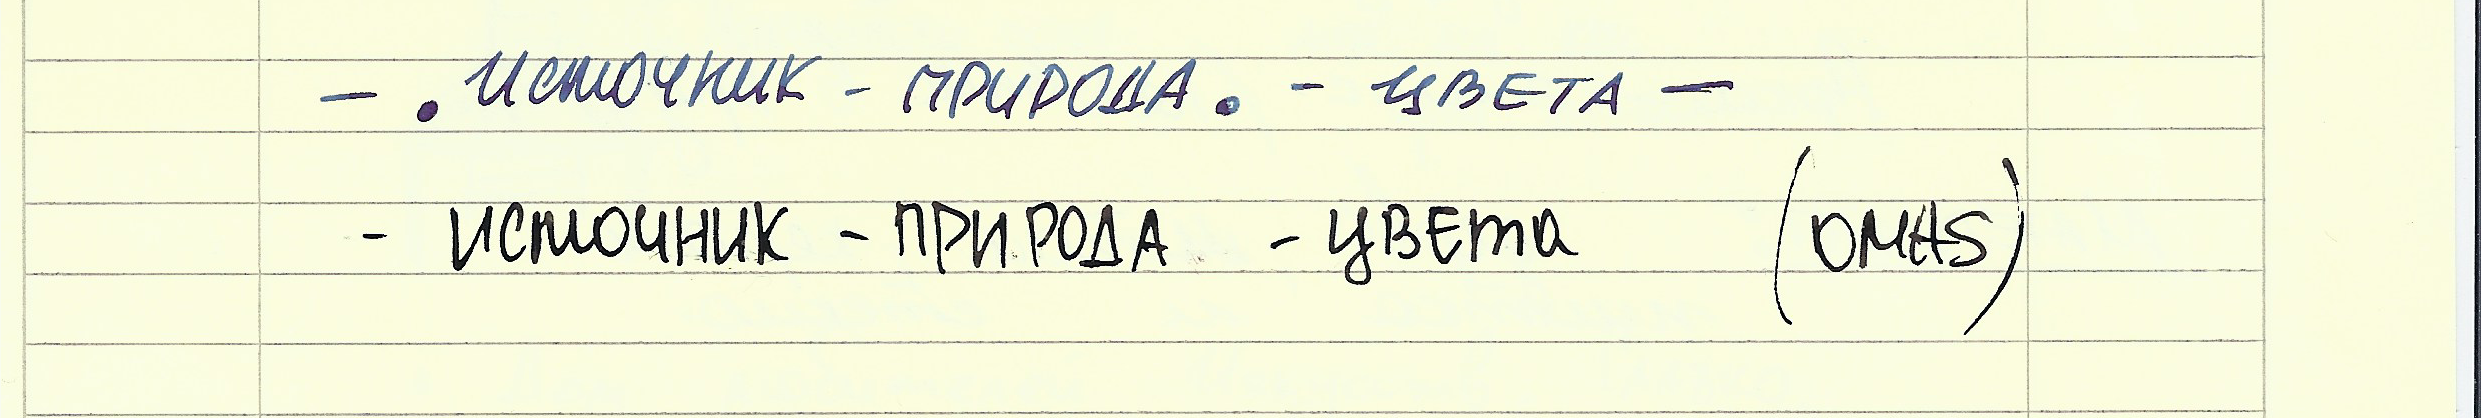 — . ИСТОЧНИК - ПРИРОДА . - ЦВЕТА —
- ИСТОЧНИК - ПРИРОДА - ЦВЕТА (DMAS)